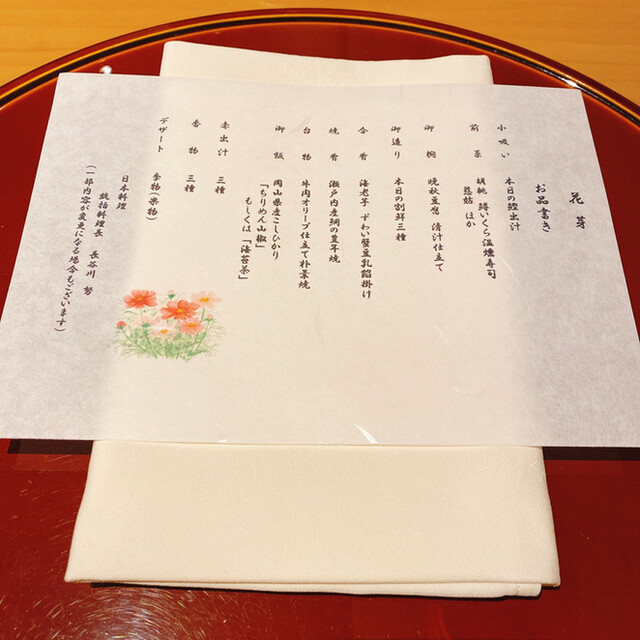 花芽
お品書き
小吸い 本日の鰹出汁
前菜 胡桃 鱒いくら温燻寿司
慈姑 ほか
御椀 晩秋豆腐 清汁仕立て
御造り 本日の割鮮三種
合肴 海老芋 ずわい蟹豆乳餡掛け
焼肴 瀬戸内産鯛の豊年焼
台物 牛肉オリーブ仕立て朴葉焼
御飯 岡山県産こしひかり
「ちりめん山椒」
もしくは「海苔茶」
赤出汁 三種
香物 三種
デザート 季物(果物)
日本料理
統括料理長 長谷川 努
(一部内容が変更になる場合もございます)